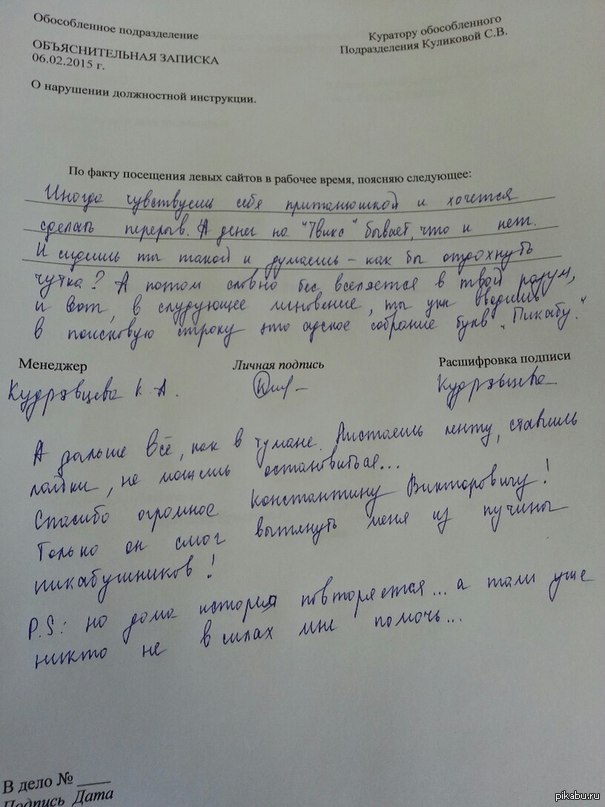 Обособленное подразделение
Куратору обособленного
Подразделения Куликовой С.В.
ОБЪЯСНИТЕЛЬНАЯ ЗАПИСКА
06.02.2015 г.
О нарушении должностной инструкции.
По факту посещения левых сайтов в рабочее время, поясняю следующее:
Иногда чувствуешь себя притапюшкой и хочется
сделать перерыв. А денег на "Твикс" бывает, что и нет.
И сидишь ты такой и думаешь - как бы отдохнуть
чутка? А потом словно бес вселяется в твой разум,
и вот, в следующее мгновение, ты уже вводишь
в поисковую строку это адское собрание букв "Пикабу."
Менеджер
Личная подпись
Расшифровка подписи
Кудрявцева К. А.
Кудрявцева
А дальше всё, как в тумане. Листаешь ленту, ставишь
лайки, не можешь остановиться...
Спасибо огромное Константину Викторовичу!
Только он смог вытянуть меня из пучины
пикабушников!
P.S: но дома история повторяется... а там уже
никто не в силах мне помочь...
В дело № ____
Подпись Дата
pikabu.ru